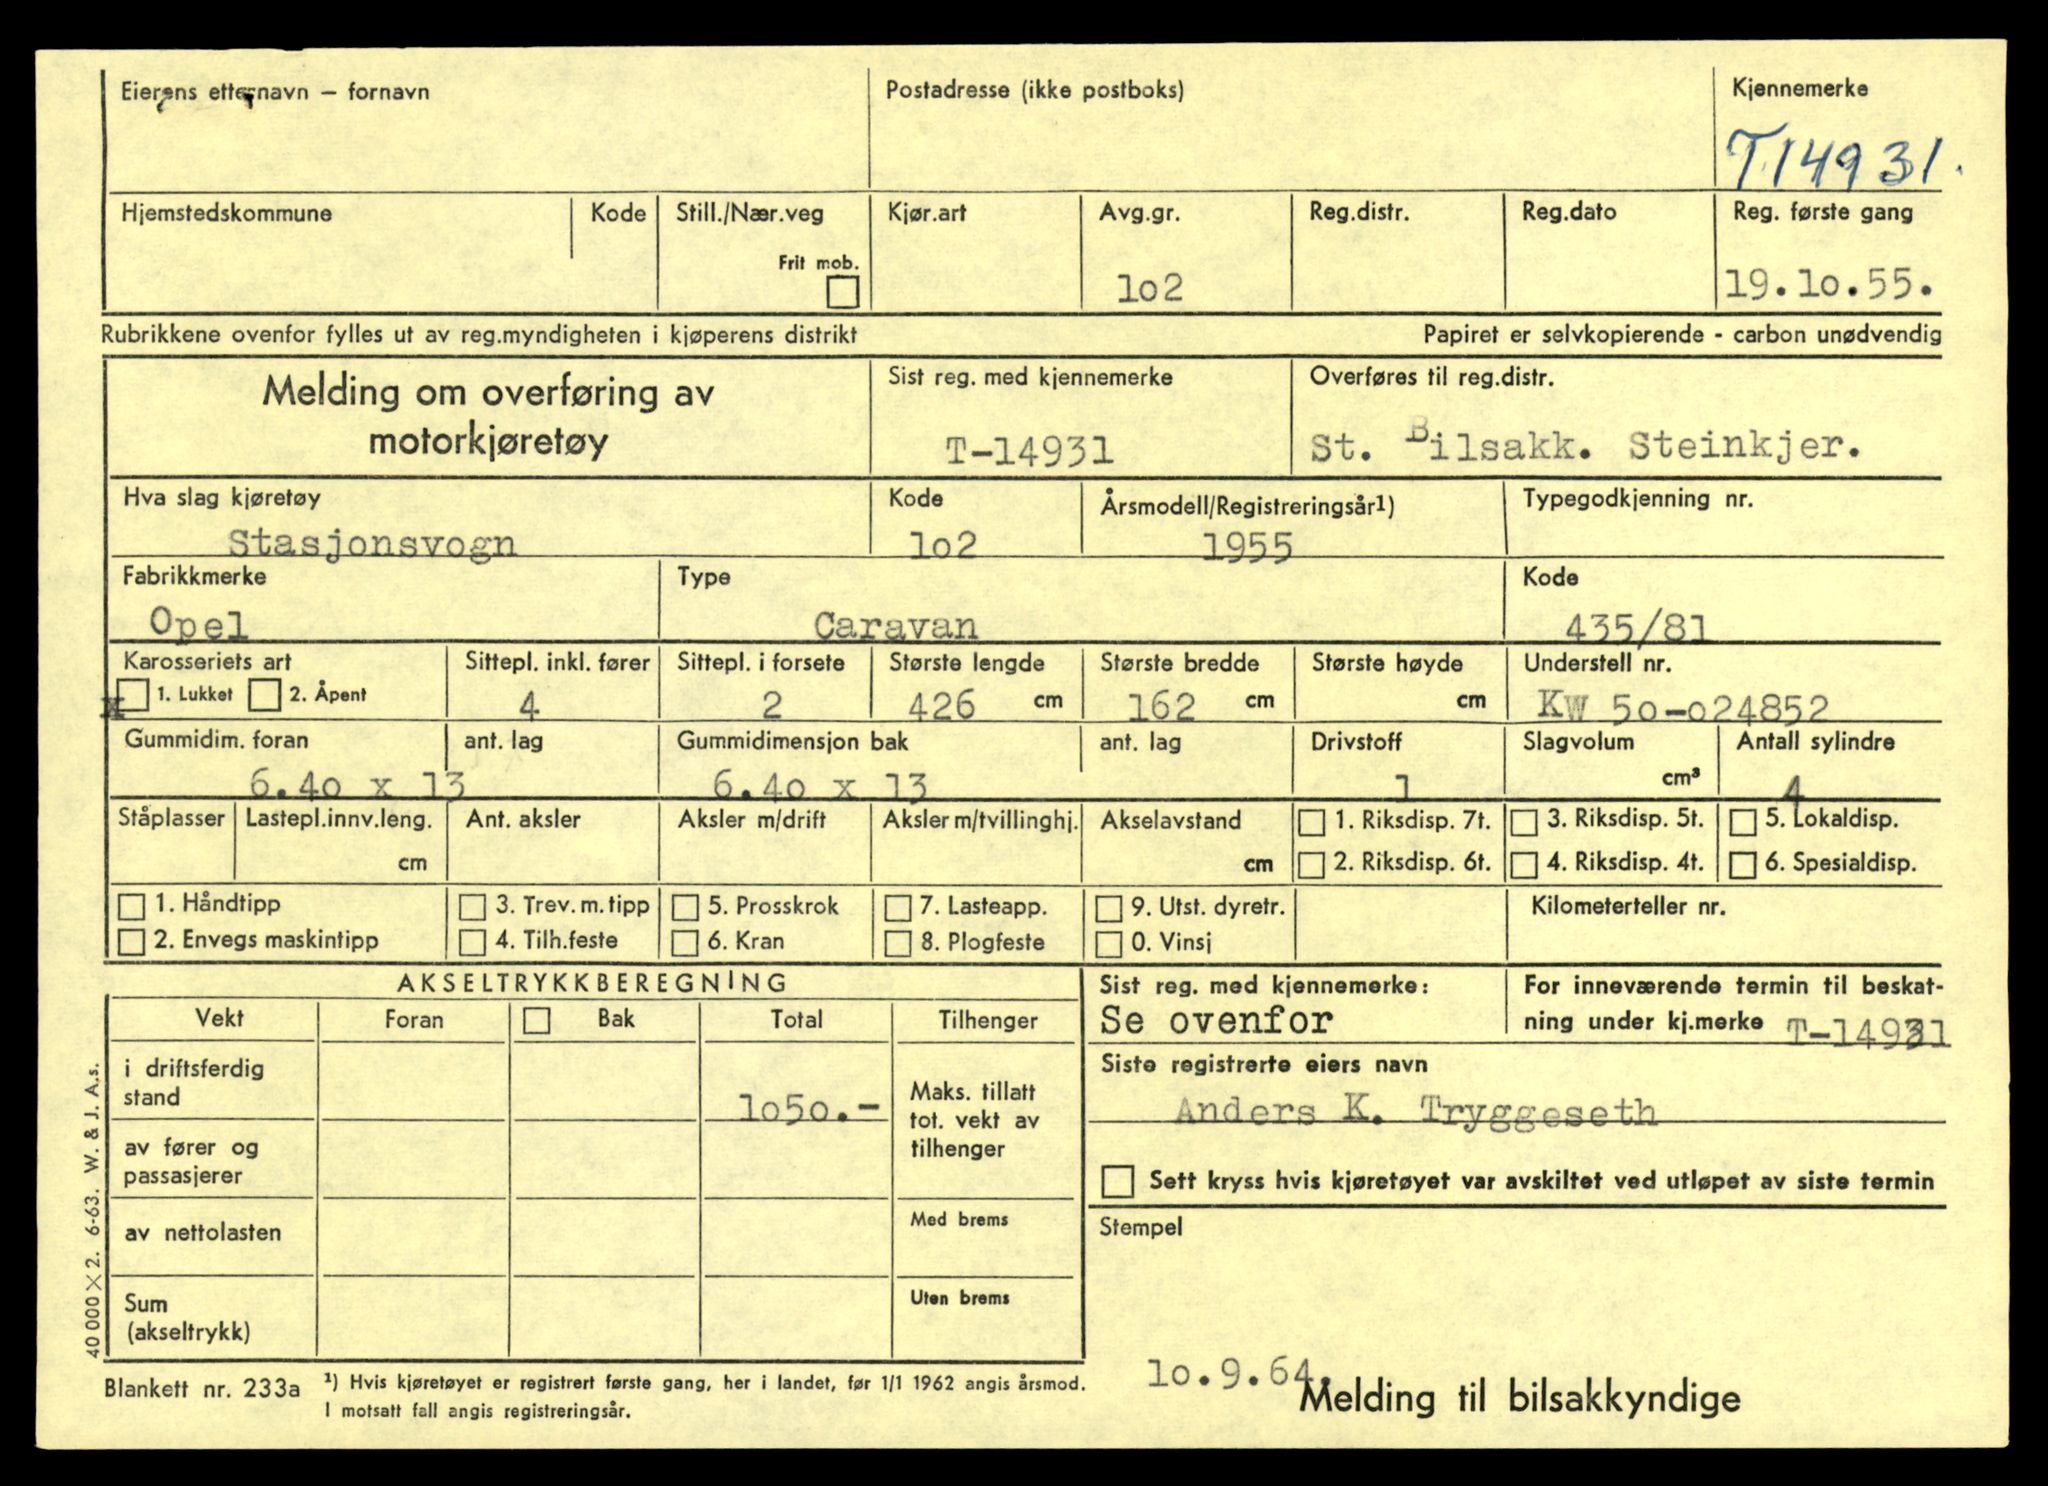 Eierens etternavn – fornavn
Postadresse (ikke postboks)
Kjennemerke
T14931.
Hjemstedskommune
Kode
Still./Nær.veg
Frit mob.
Kjør.art
Avg.gr.
lo2
Reg.distr.
Reg.dato
Reg. første gang
19.lo.55.
Rubrikkene ovenfor fylles ut av reg.myndigheten i kjøperens distrikt
Papiret er selvkopierende - carbon unødvendig
Melding om overføring av
motorkjøretøy
Sist reg. med kjennemerke
T-14931
Overføres til reg.distr.
St. Bilsakk. Steinkjer.
Hva slag kjøretøy
Stasjonsvogn
Kode
lo2
Årsmodell/Registreringsår1)
1955
Typegodkjenning nr.
Fabrikkmerke
Opel
Type
Caravan
Kode
435/81
Karosseriets art
x 1. Lukket 2. Åpent
Sittepl. inkl. fører
4
Sittepl. i forsete
2
Største lengde
426 cm
Største bredde
162 cm
Største høyde
cm
Understell nr.
KW 5o-o24852
Gummidim. foran
6.4o x 13
ant. lag
Gummidimensjon bak
6.4o x 13
ant. lag
Drivstoff
1
Slagvolum
cm³
Antall sylindre
4
Ståplasser
Lastepl.innv.leng.
cm
Ant. aksler
Aksler m/drift
Aksler m/tvillinghj.
Akselavstand
cm
1. Riksdisp. 7t.
2. Riksdisp. 6t.
3. Riksdisp. 5t.
4. Riksdisp. 4t.
5. Lokaldisp.
6. Spesialdisp.
1. Håndtipp
2. Envegs maskintipp
3. Trev. m. tipp
4. Tilh.feste
5. Prosskrok
6. Kran
7. Lasteapp.
8. Plogfeste
9. Utst. dyretr.
0. Vinsj
Kilometerteller nr.
AKSELTRYKKBEREGNING
Vekt
Foran
Bak
Total
Tilhenger
i driftsferdig
stand
lo5o.-
Maks. tillatt
tot. vekt av
tilhenger
av fører og
passasjerer
av nettolasten
Med brems
Sum
(akseltrykk)
Uten brems
Sist reg. med kjennemerke:
Se ovenfor
For inneværende termin til beskat-
ning under kj.merke T-14931
Siste registrerte eiers navn
Anders K. Tryggeseth
Sett kryss hvis kjøretøyet var avskiltet ved utløpet av siste termin
Stempel
lo.9.64.
Melding til bilsakkyndige
40 000 × 2. 6-63. W. & J. A.s.
Blankett nr. 233a
1) Hvis kjøretøyet er registrert første gang, her i landet, før 1/1 1962 angis årsmod.
I motsatt fall angis registreringsår.